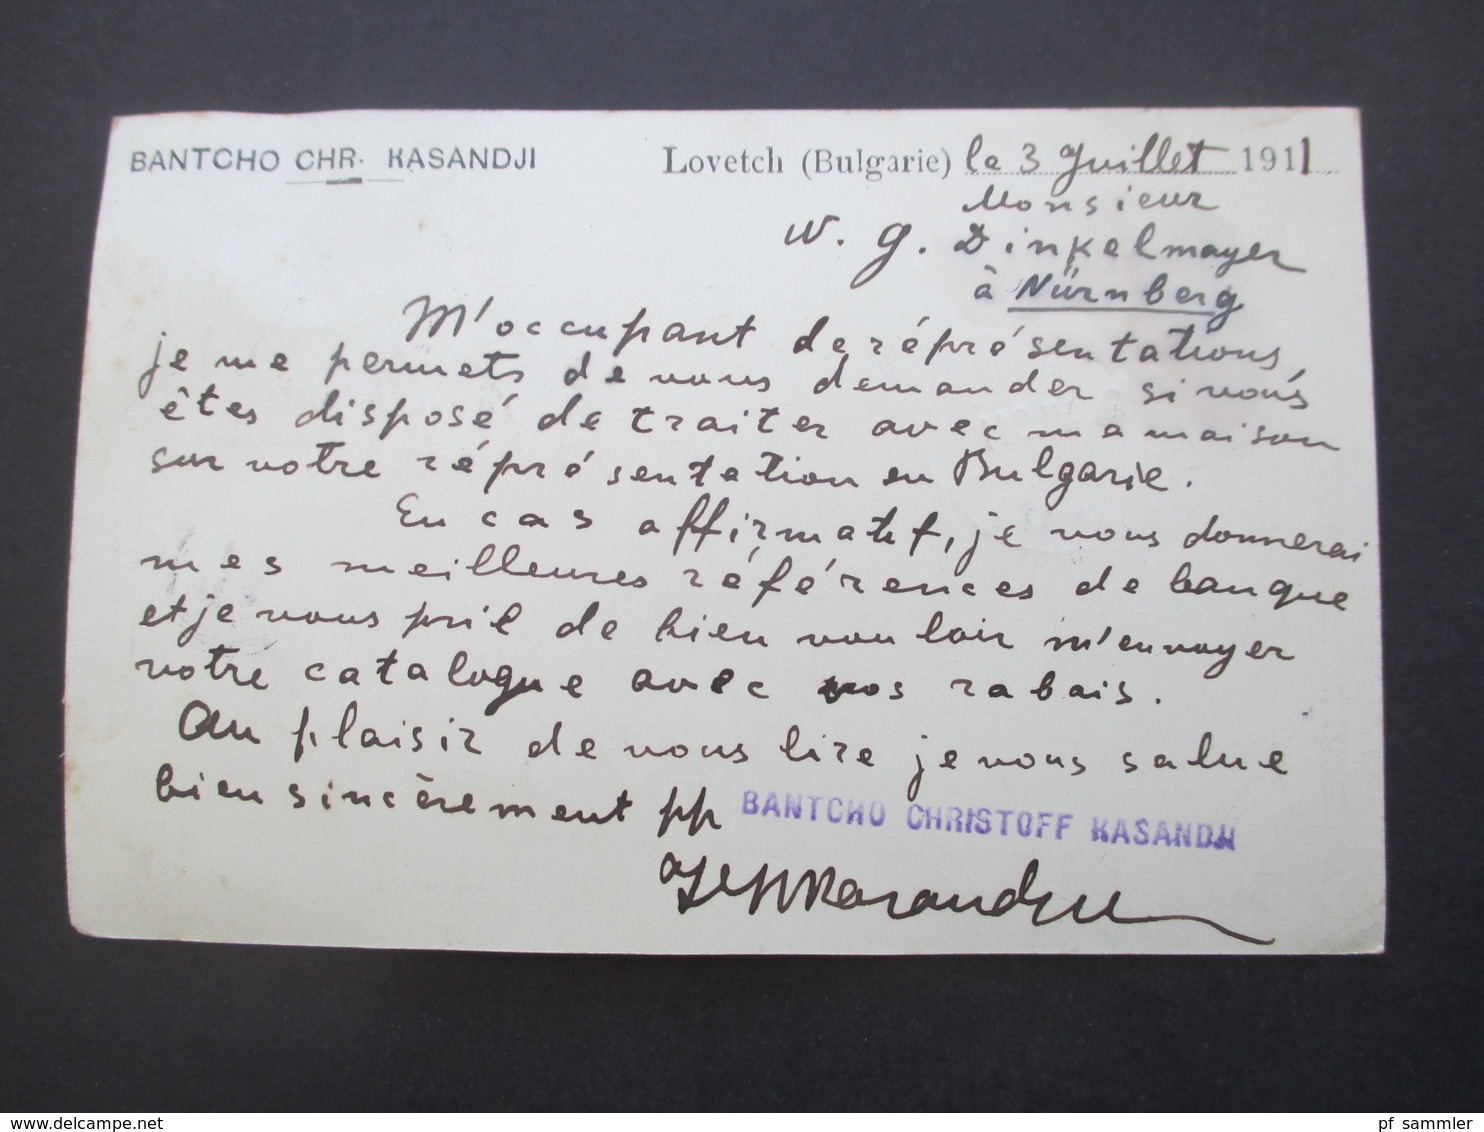 BANTCHO CHR. KASANDJI
Lovetch (Bulgarie) le 3 Juillet 1911
Monsieur
W. G. Dinkelmayer
à Nürnberg
M'occupant de réprésentations,
je me permets de vous demander si vous
êtes disposé de traiter avec ma maison
sur votre réprésentation en Bulgarie.
En cas affirmatif, je vous donnerai
mes meilleures références de banque
et je vous prie de bien vouloir m'envoyer
votre catalogue avec vos rabais.
Au plaisir de vous lire je vous salue
bien sincèrement pp BANTCHO CHRISTOFF KASANDJI
Kasandjie
delcampe.net
pf_sammler